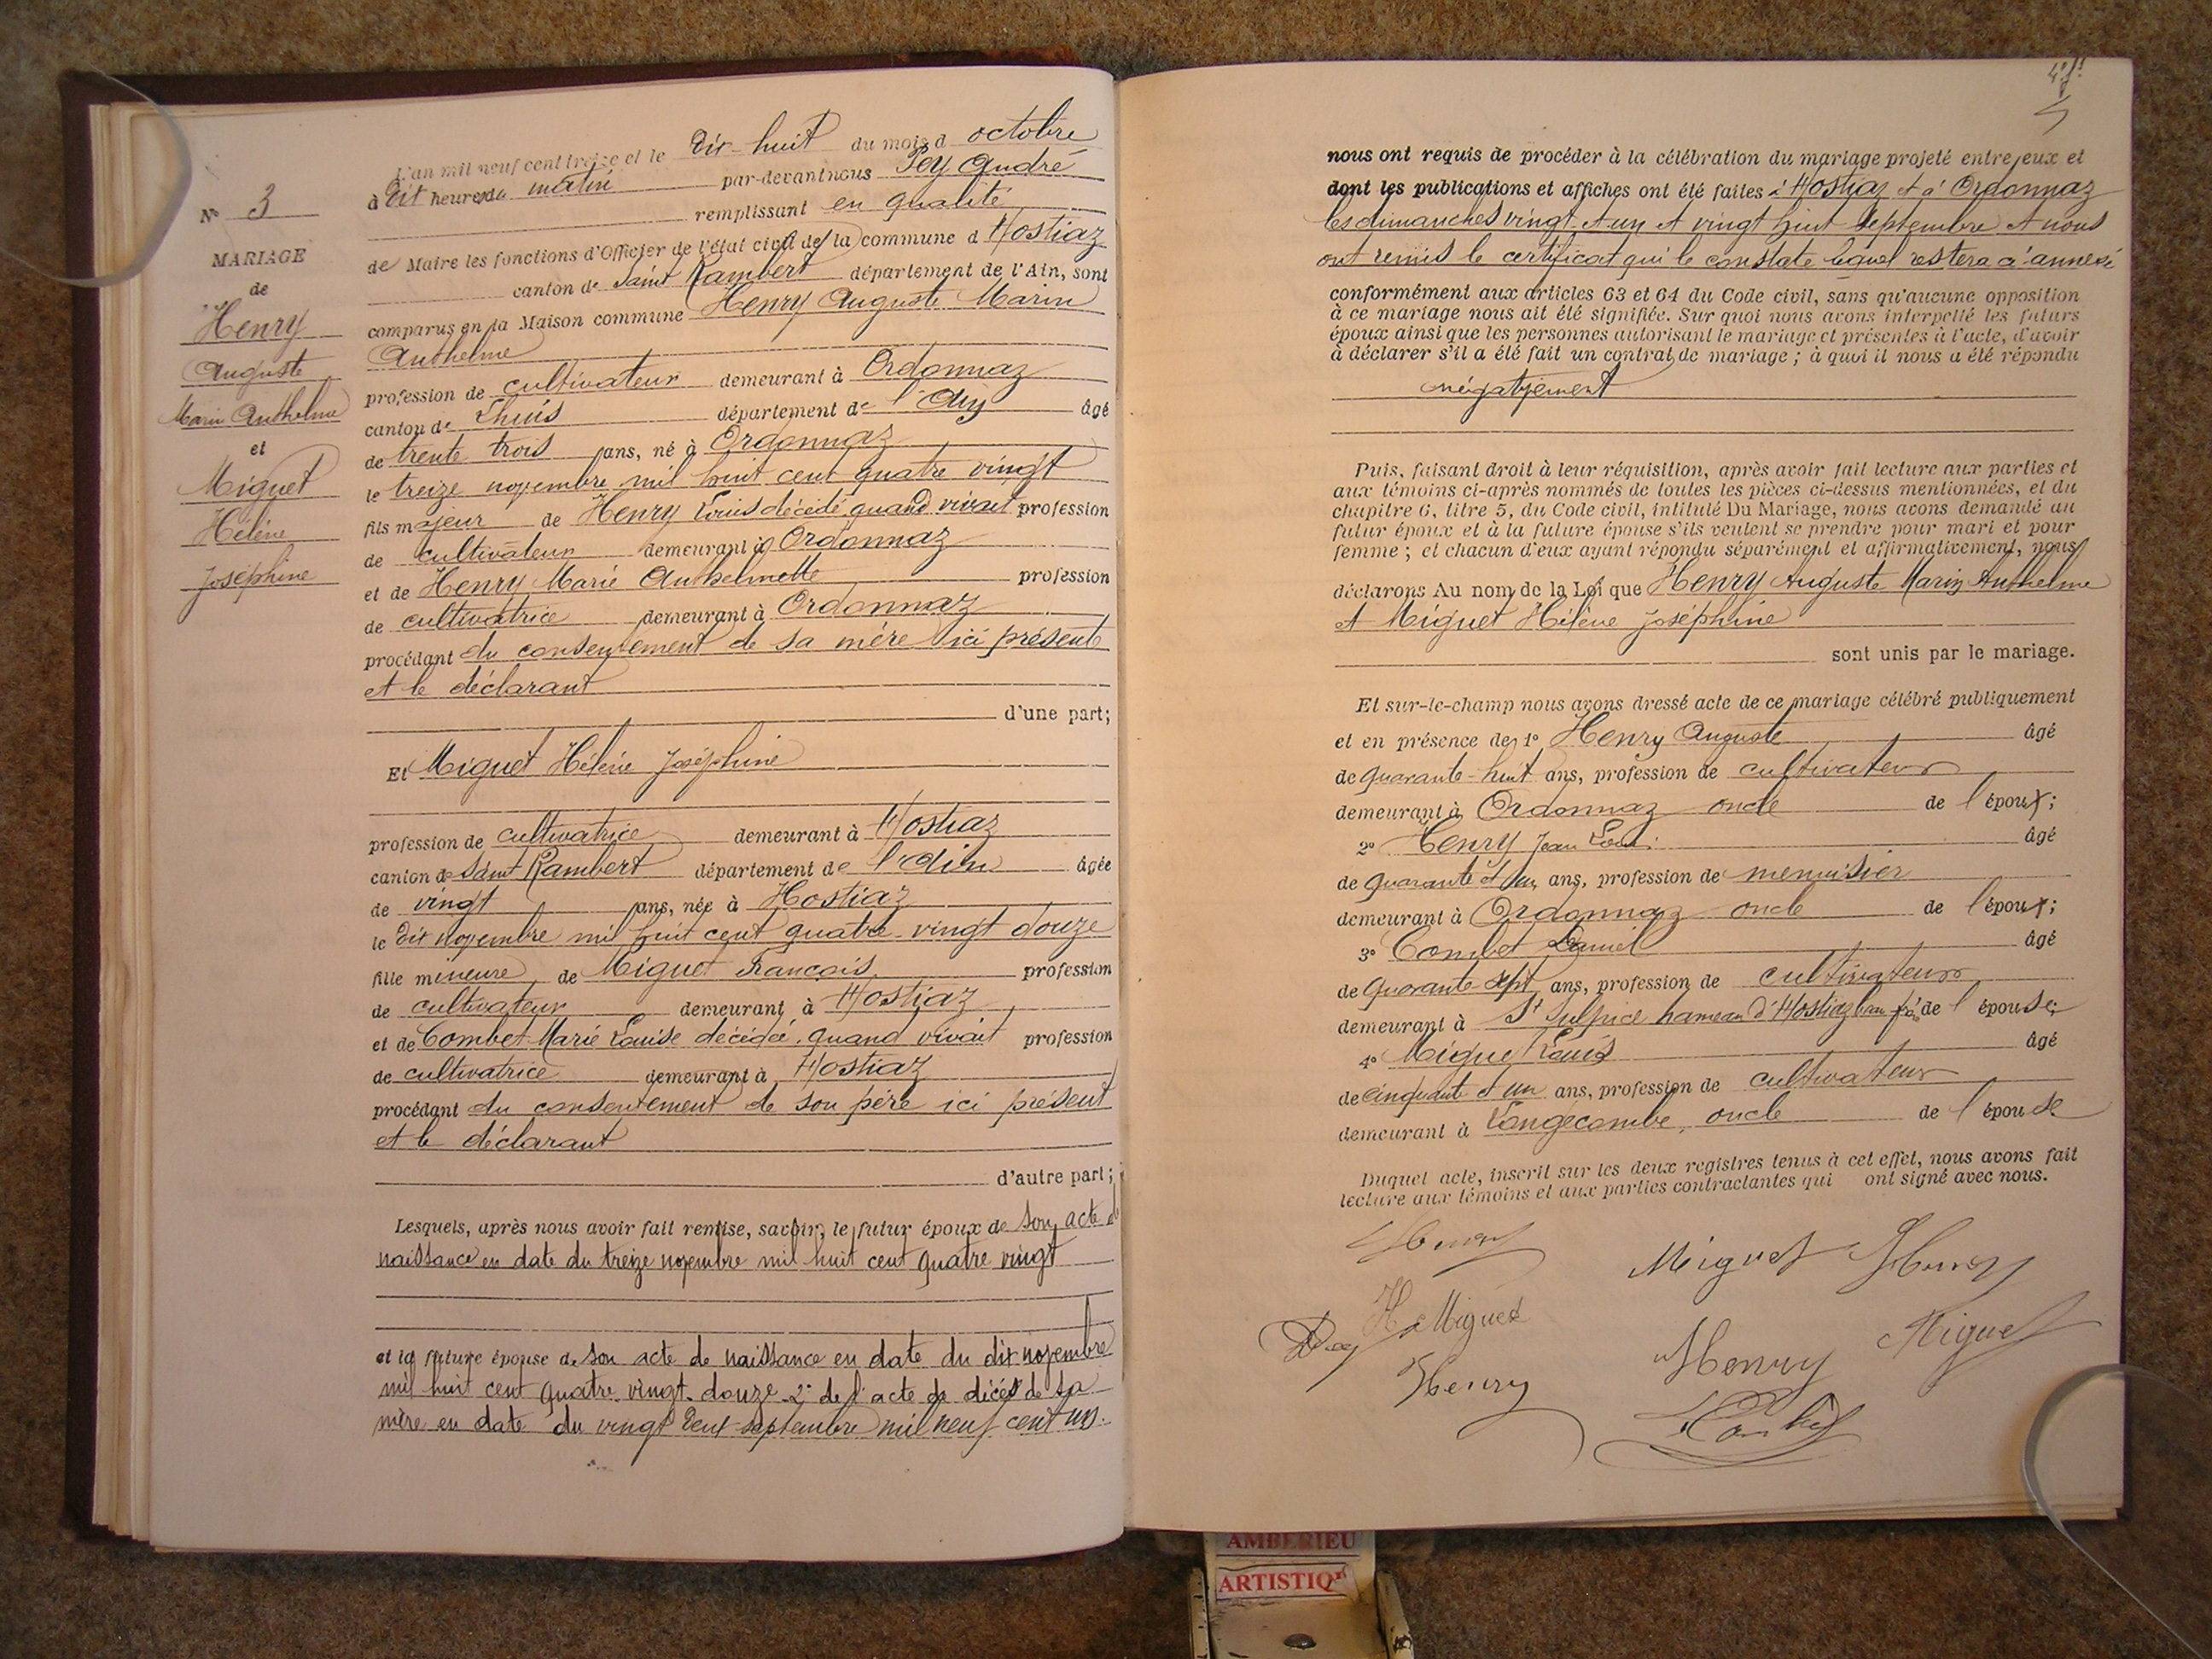 N° 3
MARIAGE
de
Henry
Auguste
Marin Anthelme
et
Miguet
Hélène
Joséphine
L'an mil neuf cent treize et le Dix-huit du mois d octobre
à Dix heures du matin par-devant nous Pey André
remplissant en qualité
de Maire les fonctions d'Officier de l'état civil de la commune d Hostiaz
canton de Saint Rambert département de l'Ain, sont
comparus en la Maison commune Henry Auguste Marin
Anthelme
profession de cultivateur demeurant à Ordonnaz
canton de Lhuis département de l'Ain âgé
de trente trois ans, né à Ordonnaz
le treize novembre mil huit cent quatre vingt
fils majeur de Henry Louis décédé quand vivait profession
de cultivateur demeurant à Ordonnaz
et de Henry Marie Anthelmette profession
de cultivatrice demeurant à Ordonnaz
procédant du consentement de sa mère ici présente
et le déclarant
d'une part;
Et Miguet Hélène Joséphine
profession de cultivatrice demeurant à Hostiaz
canton de Saint Rambert département de l'Ain âgée
de vingt ans, née à Hostiaz
le Dix novembre mil huit cent quatre vingt douze
fille mineure de Miguet François profession
de cultivateur demeurant à Hostiaz
et de Combet Marie Louise décédée, quand vivait profession
de cultivatrice demeurant à Hostiaz
procédant du consentement de son père ici présent
et le déclarant
d'autre part;
Lesquels, après nous avoir fait remise, savoir, le futur époux de son acte de
naissance en date du treize novembre mil huit cent quatre vingt
et la future épouse de son acte de naissance en date du dix novembre
mil huit cent quatre vingt douze 2° de l'acte de décès de sa
mère en date du vingt deux septembre mil neuf cent un.
nous ont requis de procéder à la célébration du mariage projeté entre eux et
dont les publications et affiches ont été faites à Hostiaz et à Ordonnaz
les dimanches vingt et un et vingt huit septembre et nous
ont remis le certificat qui le constate lequel restera ci annexé
conformément aux articles 63 et 64 du Code civil, sans qu'aucune opposition
à ce mariage nous ait été signifiée. Sur quoi nous avons interpellé les futurs
époux ainsi que les personnes autorisant le mariage et présentes à l'acte, d'avoir
à déclarer s'il a été fait un contrat de mariage; à quoi il nous a été répondu
négativement
Puis, faisant droit à leur réquisition, après avoir fait lecture aux parties et
aux témoins ci-après nommés de toutes les pièces ci-dessus mentionnées, et du
chapitre 6, titre 5, du Code civil, intitulé Du Mariage, nous avons demandé au
futur époux et à la future épouse s'ils veulent se prendre pour mari et pour
femme; et chacun d'eux ayant répondu séparément et affirmativement, nous
déclarons Au nom de la Loi que Henry Auguste Marin Anthelme
et Miguet Hélène Joséphine
sont unis par le mariage.
Et sur-le-champ nous avons dressé acte de ce mariage célébré publiquement
et en présence de 1° Henry Auguste âgé
de quarante-huit ans, profession de cultivateur
demeurant à Ordonnaz oncle de l'époux;
2° Henry Jean Louis âgé
de quarante et un ans, profession de menuisier
demeurant à Ordonnaz oncle de l'époux;
3° Combet Daniel âgé
de quarante-sept ans, profession de cultivateur
demeurant à St Sulpice hameau d'Hostiaz de l'épouse;
4° Miguet Louis âgé
de cinquante et un ans, profession de cultivateur
demeurant à Longecombe, oncle de l'épouse
Duquel acte, inscrit sur les deux registres tenus à cet effet, nous avons fait
lecture aux témoins et aux parties contractantes qui ont signé avec nous.
Henry
Miguet Henry
H Miguet
Pey
Henry Miguet
Henry
Combet
AMBERIEU
ARTISTIQ